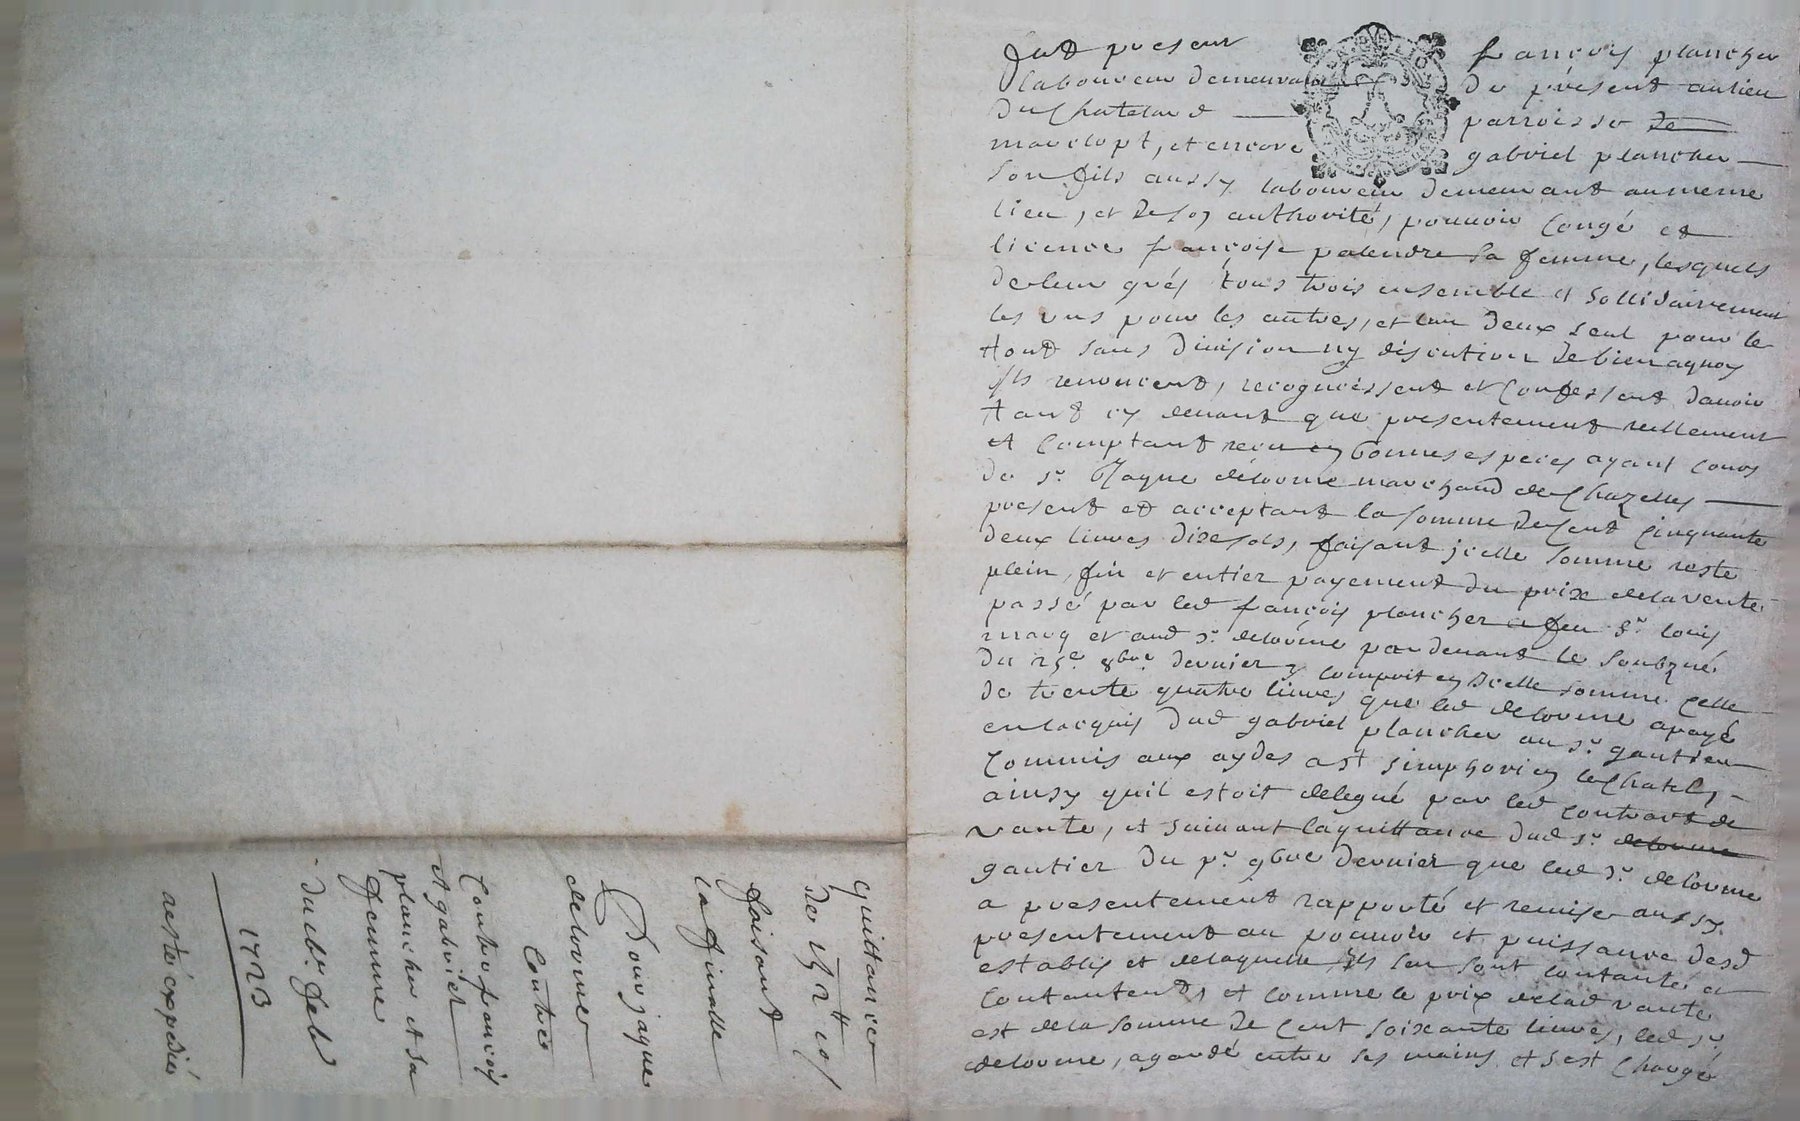 fut present françois plancher
laboureur demeurant de présent au lieu
du Chatelard parroisse de
marclopt, et encore gabriel plancher
son fils aussy laboureur demeurant au meme
lieu, et de son authorité, pouuoir congé et
licence françoise palendre sa femme, lesquels
de leur gréz tous trois ensemble et sollidairement
les uns pour les autres, et lun deux seul pour le
tout sans diuision ny discution de bien aquoy
ils renoncent, recognoissent et confessent dauoir
tant cy deuant que presentement reellement
et comptant receu en bonnes especes ayant cours
de sr. Jaque delorme marchand de Chazelles
present et acceptant la somme de cent cinquante
deux liures dix sols, faisant jcelle somme reste
plein, fin et entier payement du prix de la vente
passé par led françois plancher a feu sr. louis
marq et aud sr. delorme par deuant le soubzné
du 25e. 8bre. dernier y comprit en jcelle somme celle
de trente quatre liures que led delorme a payé
en lacquis dud gabriel plancher au sr. gautier
commis aux aydes a st simphorien le Chatel,
ainsy quil estoit delegué par led contract de
vante, et suiuant la quittance dud sr. delorme
gautier du pr. 9bre dernier que led sr. delorme
a presentement rapporté et remise aussy
presentement au pouuoir et puissance desd
establis et de laquelle ils sen sont contanté et
contantent, et comme le prix de lad vante
est de la somme de cent soixante liures, led sr.
delorme, a gardé entre ses mains et sest chargé
quittance
de 152ll 10s
faisant
la finalle
Pour jaque
delorme
Contre
Contre françois
et gabriel
plancher et sa
femme
du er. feb
1723
resté expedié